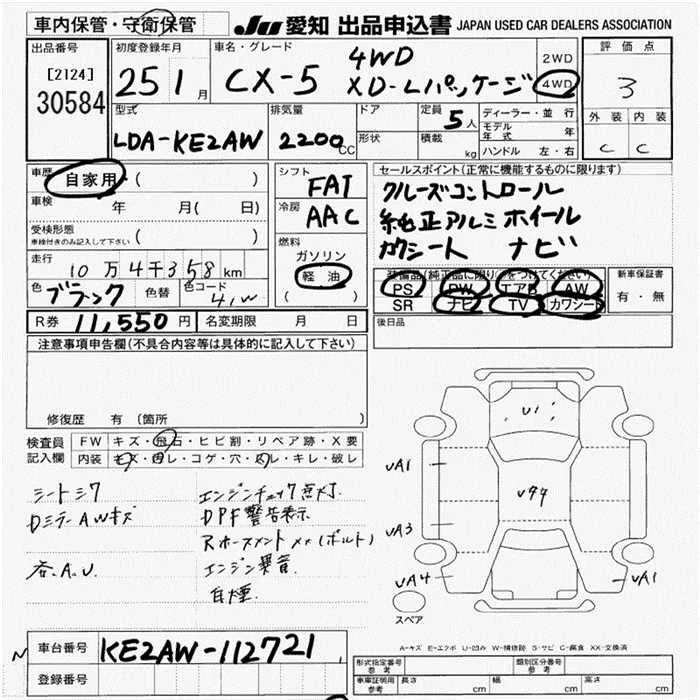 車内保管・守衛保管
JU 愛知 出品申込書 JAPAN USED CAR DEALERS ASSOCIATION
出品番号
[2124]
30584
初度登録年月
25 1月
車名・グレード
CX-5 4WD
XD-Lパッケージ
2WD
4WD
評価点
3
外装 内装
C C
型式
LDA-KE2AW
排気量
2200CC
ドア
形状
定員 5人
積載 kg
ディーラー・並行
モデル年式 年
ハンドル 左・右
車歴 自家用・( )
車検 年 月(日)
受検形態
車検付きのみ記入して下さい ( )
走行
10万4千358km
色 ブラック 色替 色コード 41W
シフト
FAT
冷房
AAC
燃料
ガソリン
軽油
( )
セールスポイント(正常に機能するものに限ります)
クルーズコントロール
純正アルミホイール
カワシート ナビ
装備品(純正品に限り○をつけてください)
PS PW エアB AW
SR ナビ TV カワシート
新車保証書
有・無
後日品
R券 11,550円 名変期限 月 日
注意事項申告欄(不具合内容等は具体的に記入して下さい)
修復歴 有 (箇所 )
検査員記入欄
FW キズ・飛石・ヒビ割・リペア跡・X要
内装 キズ・凹レ・コゲ・穴・スレ・キレ・破レ
シートシワ
DミラーAWキズ
各.A.U.
エンジンチェック点灯.
DPF警告表示
Rホースメント××(ボルト)
エンジン異音
白煙
U1
UA1
U94
UA3
UA4
UA1
スペア
A-キズ E-エクボ U-凹み W-補修跡 S-サビ C-腐食 XX-交換済
車台番号 KE2AW-112721
登録番号
形式指定番号 参考
類別区分番号 参考
車庫証明用 参考
長さ cm
幅 cm
高さ cm